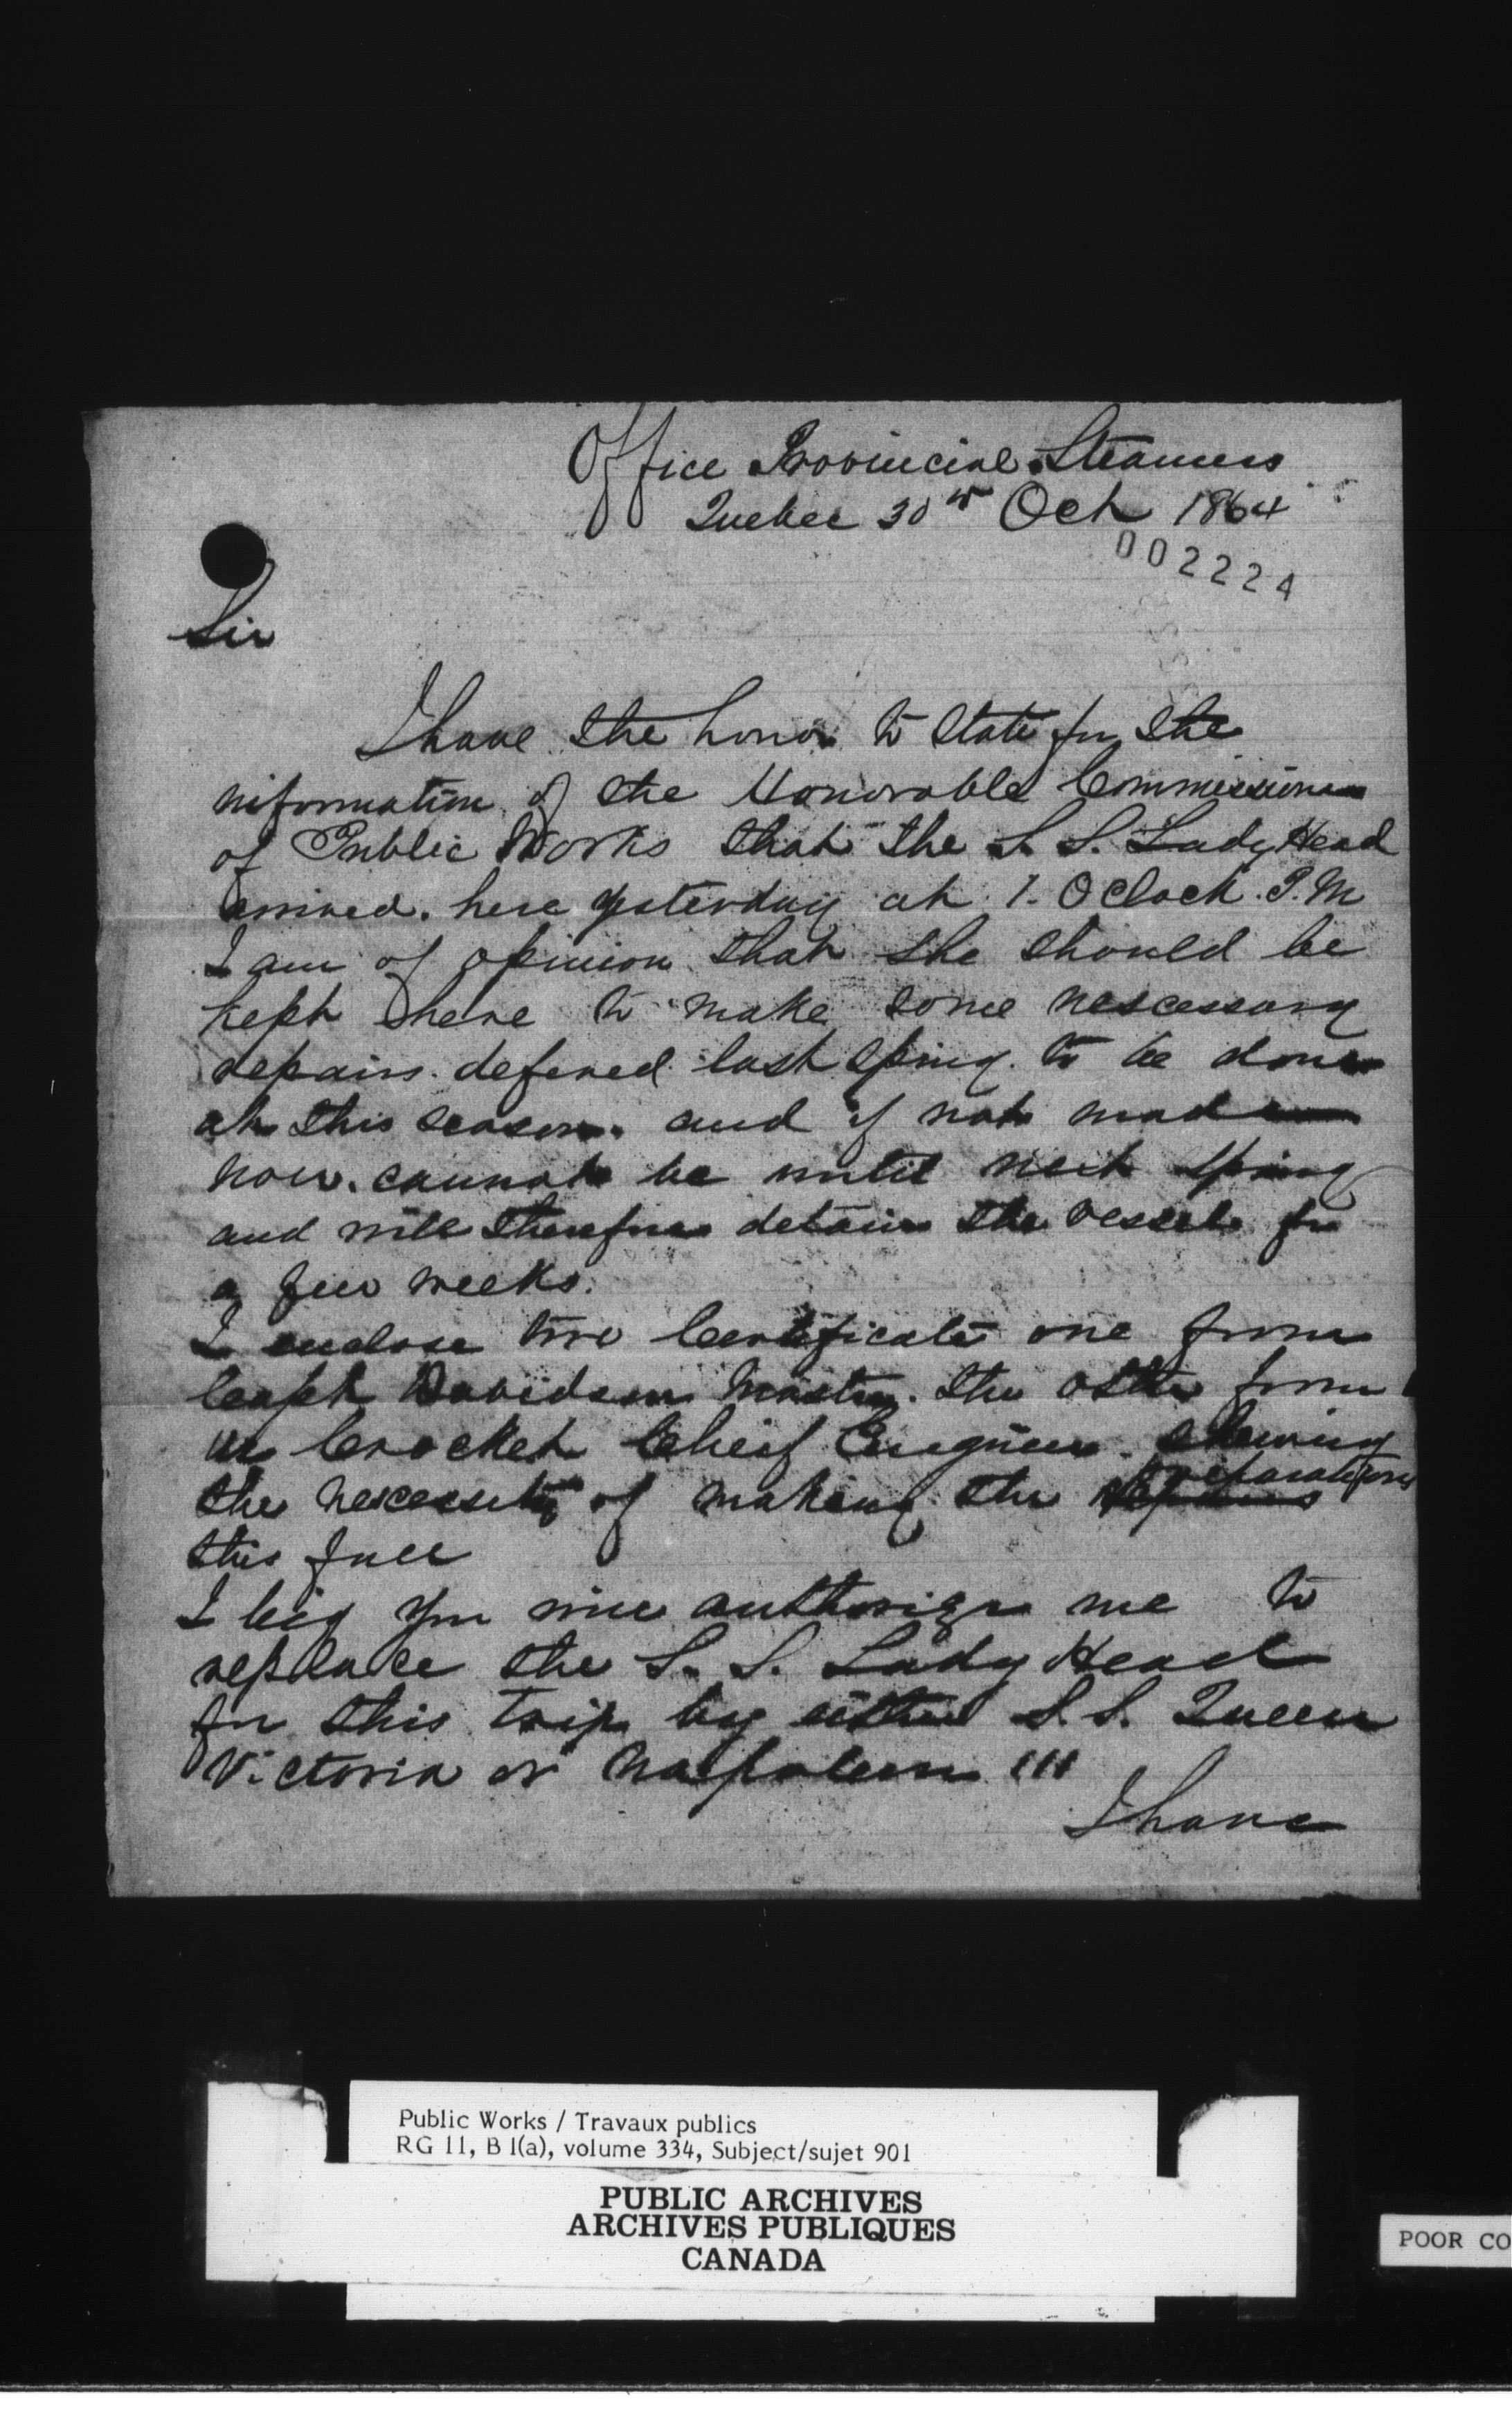 Office Provincial Steamers
Quebec 30th Oct 1864
002224
Sir
I have the honor to State for the
information of the Honorable Commissioner
of Public Works that the S. S. Lady Head
arrived here yesterday at 1. OClock P.M
I am of opinion that she should be
kept here to make some nescessary
repairs defered last Spring to be done
at this season. and if not made
now. cannot be until next Spring
and will therefore detain the vessel for
a few weeks.
I enclose two Certificate one from
Capt Davidson Master. the other from
Mr Crocket Chief Engineer shewing
the nescessity of making the reparations
this fall
I beg you will authorize me to
replace the S. S. Lady Head
for this trip by either S. S. Queen
Victoria or Napoleon III
I have
Public Works / Travaux publics
RG 11, B 1(a), volume 334, Subject/sujet 901
PUBLIC ARCHIVES
ARCHIVES PUBLIQUES
CANADA
POOR CO